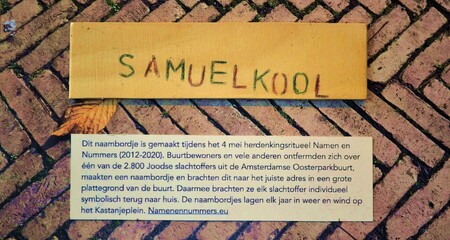 SAMUEL KOOL
Dit naambordje is gemaakt tijdens het 4 mei herdenkingsritueel Namen en
Nummers (2012-2020). Buurtbewoners en vele anderen ontfermden zich over
één van de 2.800 Joodse slachtoffers uit de Amsterdamse Oosterparkbuurt,
maakten een naambordje en brachten dit naar het juiste adres in een grote
plattegrond van de buurt. Daarmee brachten ze elk slachtoffer individueel
symbolisch terug naar huis. De naambordjes lagen elk jaar in weer en wind op
het Kastanjeplein. Namenennummers.eu